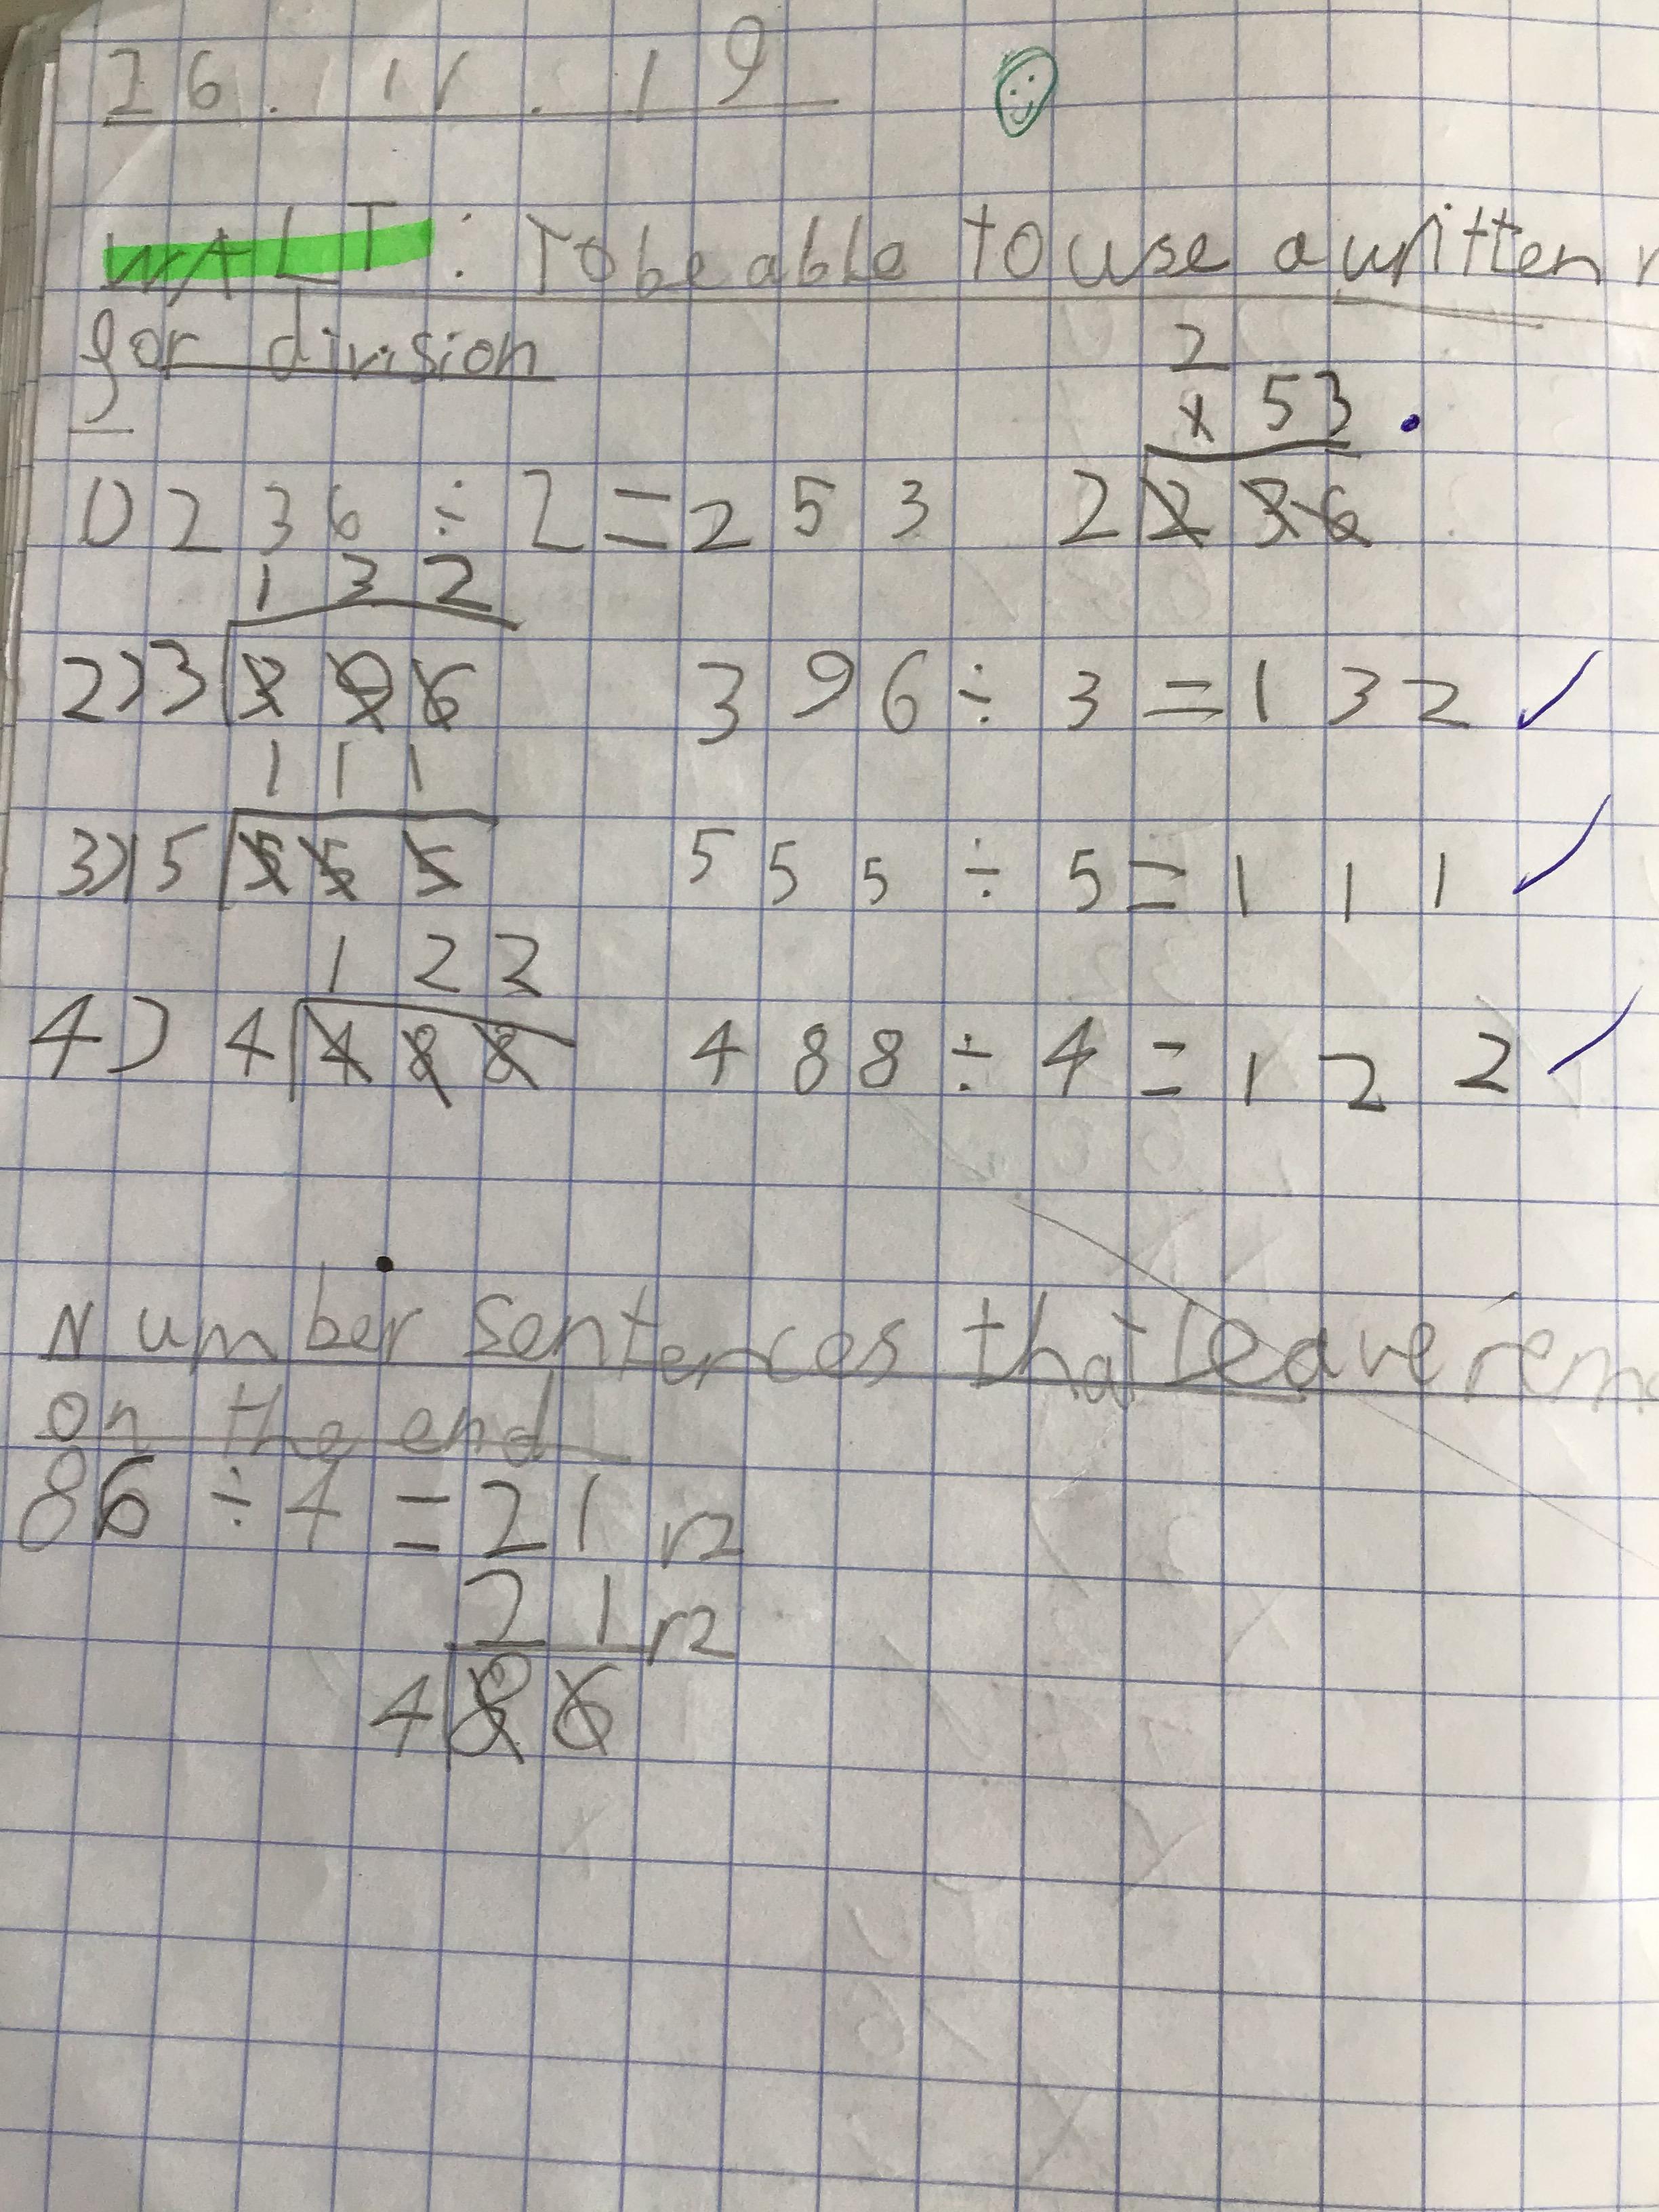 26.11.19
WALT: To be able to use a written
for division
2
x 53
1) 236 ÷ 2 = 253 2 236
1 3 2
2) 3 396 396 ÷ 3 = 132
1 1 1
3) 5 555 555 ÷ 5 = 111
1 2 2
4) 4 488 488 ÷ 4 = 122
Number sentences that leave rem
on the end
86 ÷ 4 = 21 r2
21 r2
4 86